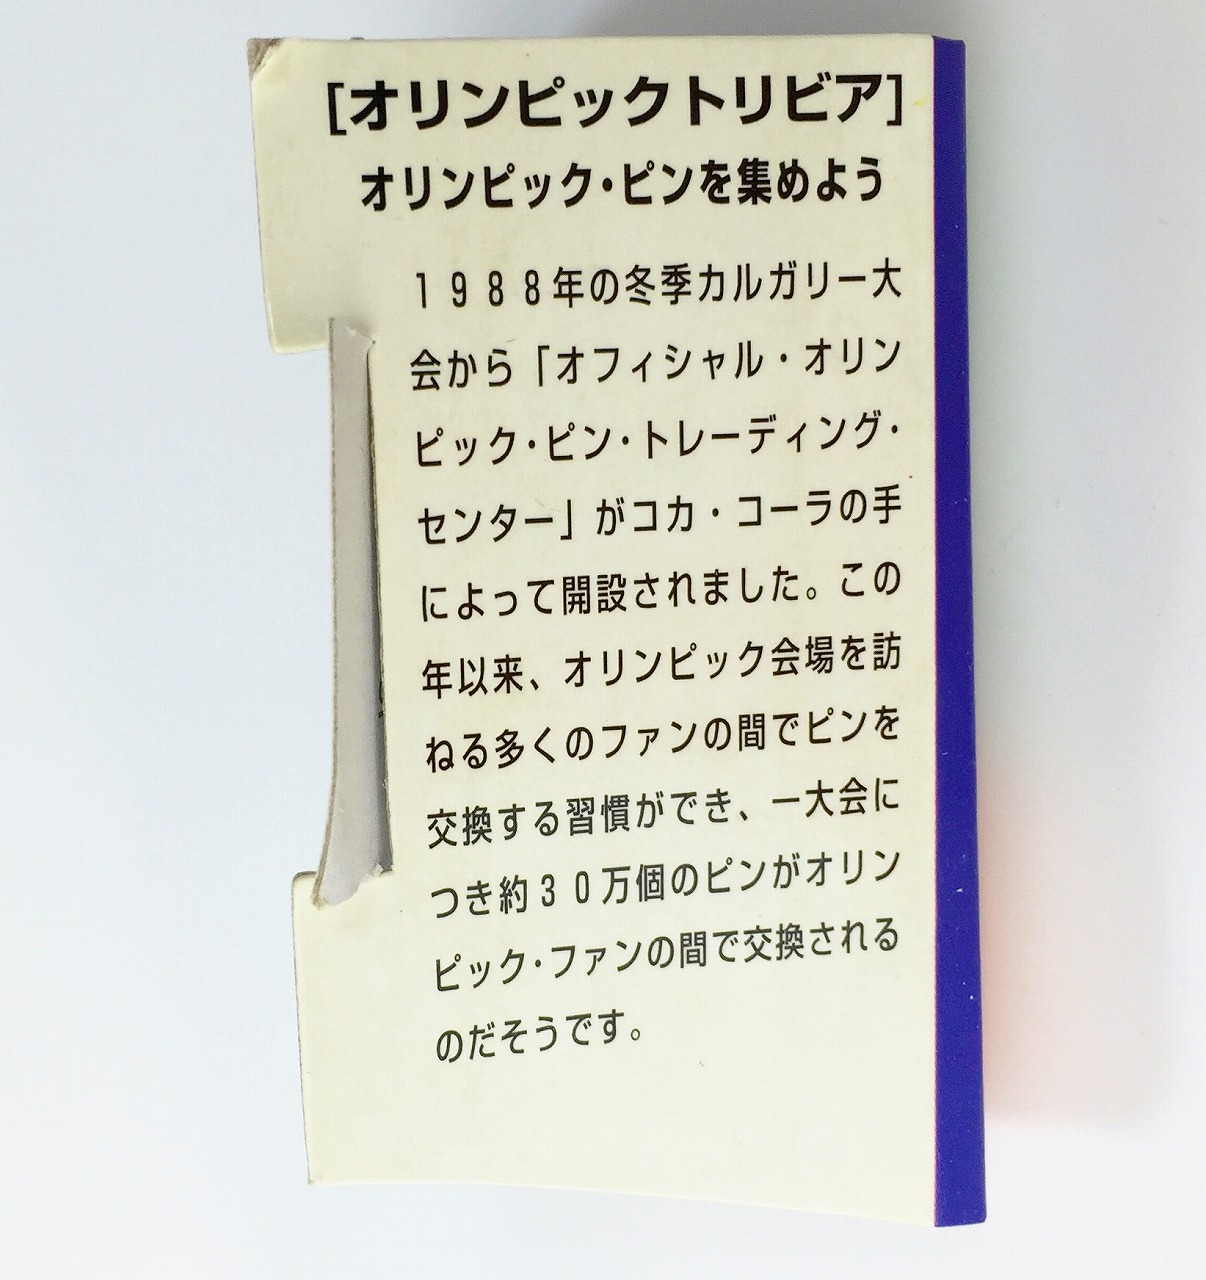 [オリンピックトリビア]
オリンピック・ピンを集めよう
１９８８年の冬季カルガリー大
会から「オフィシャル・オリン
ピック・ピン・トレーディング・
センター」がコカ・コーラの手
によって開設されました。この
年以来、オリンピック会場を訪
ねる多くのファンの間でピンを
交換する習慣ができ、一大会に
つき約３０万個のピンがオリン
ピック・ファンの間で交換される
のだそうです。